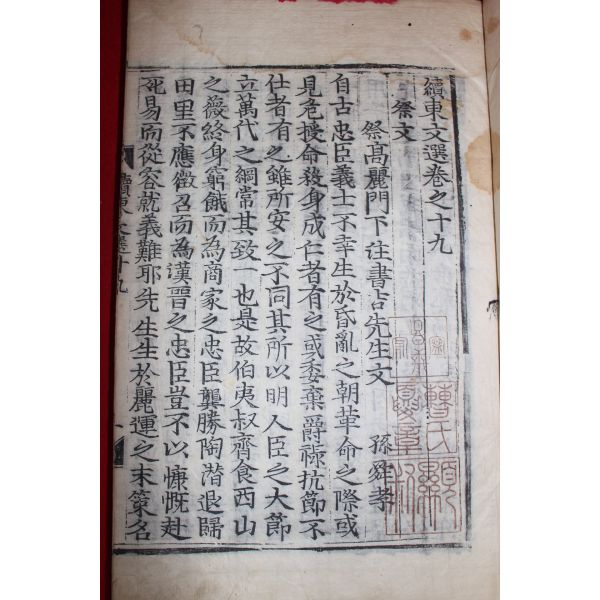 續東文選卷之十九
祭文
祭高麗門下注書吉先生文
孫舜孝
自古忠臣義士不幸生於昏亂之朝革命之際或
見危授命殺身成仁者有之或委棄爵祿抗節不
仕者有之雖所安之不同其所以明人臣之大節
立萬代之綱常其致一也是故伯夷叔齊食西山
之薇終身窮餓而為商家之忠臣龔勝陶潛退歸
田里不應徵召而為漢晉之忠臣豈不以慷慨赴
死易而從容就義難耶先生生於麗運之末策名
續東文選十九
一